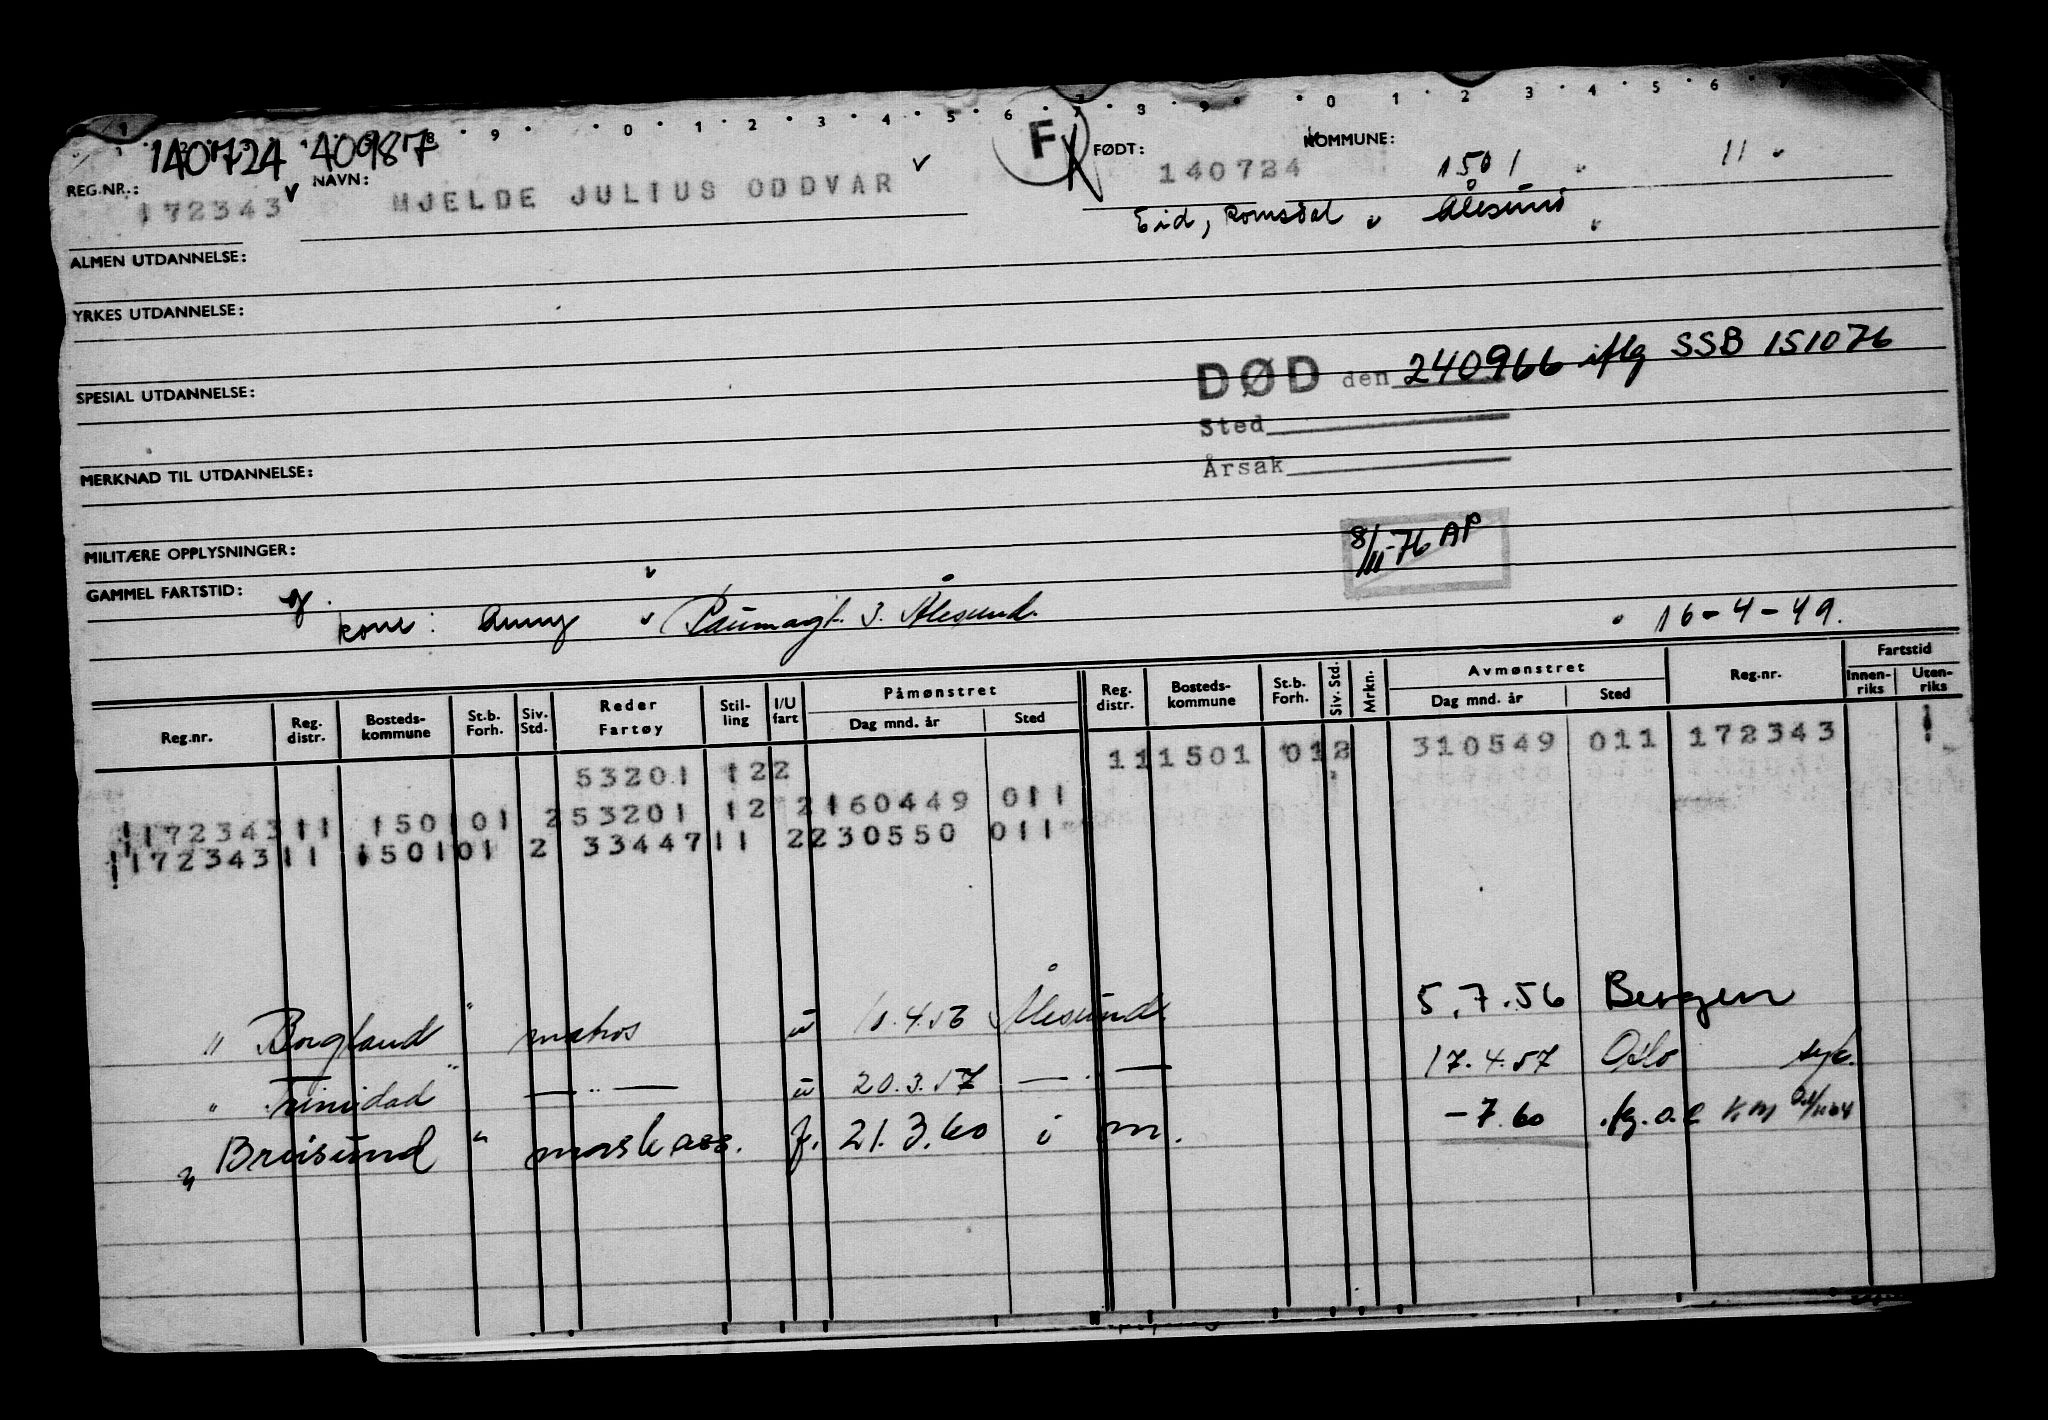 1 9 0 1 2 3 4 5 6 7 8 9 0 1 2 3 4 5 6 7
140724 40987
F
REG.NR.: 172343 NAVN: MJELDE JULIUS ODDVAR FØDT: 140724 KOMMUNE: 1501 11
Eid, Romsdal Ålesund
ALMEN UTDANNELSE:
YRKES UTDANNELSE:
DØD den 240966 iflg SSB 151076
SPESIAL UTDANNELSE:
Sted
Årsak
MERKNAD TIL UTDANNELSE:
8/11-76 AP
MILITÆRE OPPLYSNINGER:
GAMMEL FARTSTID:
kone: Anny 3. Ålesund. 16-4-49.
Reg.nr. Reg. distr. Bosteds-kommune St.b. Forh. Siv. Std. Reder Fartøy Stil-ling I/U fart Påmønstret Dag mnd. år Sted Reg. distr. Bosteds-kommune St.b. Forh. Siv. Std. Mrkn. Avmønstret Dag mnd. år Sted Reg.nr. Fartstid Innen-riks Uten-riks
53201 122 111501 012 310549 011 172343 1
117234311 150101 253201 12 2160449 011
117234311 150101 2 3344711 2230550 011
" Borgland " matros u 10.4.56 Ålesund. 5.7.56 Bergen
" Trinidad " — " — u 20.3.57 — " — 17.4.57 Oslo syk.
" Breisund " mask ass. f. 21.3.60 i m. -7.60